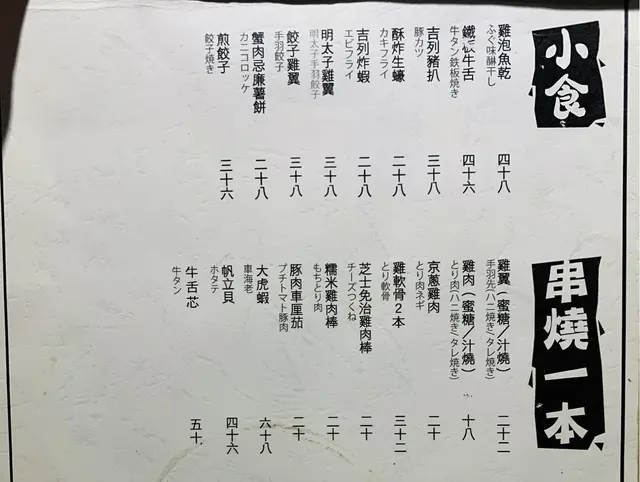 小食
雞泡魚乾
ふぐ味醂干し
四十八
鐵板牛舌
牛タン鉄板焼き
四十六
吉列豬扒
豚カツ
三十八
酥炸生蠔
カキフライ
二十八
吉列炸蝦
エビフライ
二十八
明太子雞翼
明太子手羽餃子
三十八
餃子雞翼
手羽餃子
三十八
蟹肉忌廉薯餅
カニコロッケ
二十八
煎餃子
餃子焼き
三十六
串燒一本
雞翼（蜜糖／汁燒）
手羽先(ハニ焼き/タレ焼き)
二十二
雞肉（蜜糖／汁燒）
とり肉(ハニ焼き/タレ焼き)
十八
京蔥雞肉
とり肉ネギ
二十
雞軟骨2本
とり軟骨
三十二
芝士免治雞肉棒
チーズつくね
二十
糯米雞肉棒
もちとり肉
二十
豚肉車厘茄
プチトマト豚肉
二十
大虎蝦
車海老
六十八
帆立貝
ホタテ
四十六
牛舌芯
牛タン
五十